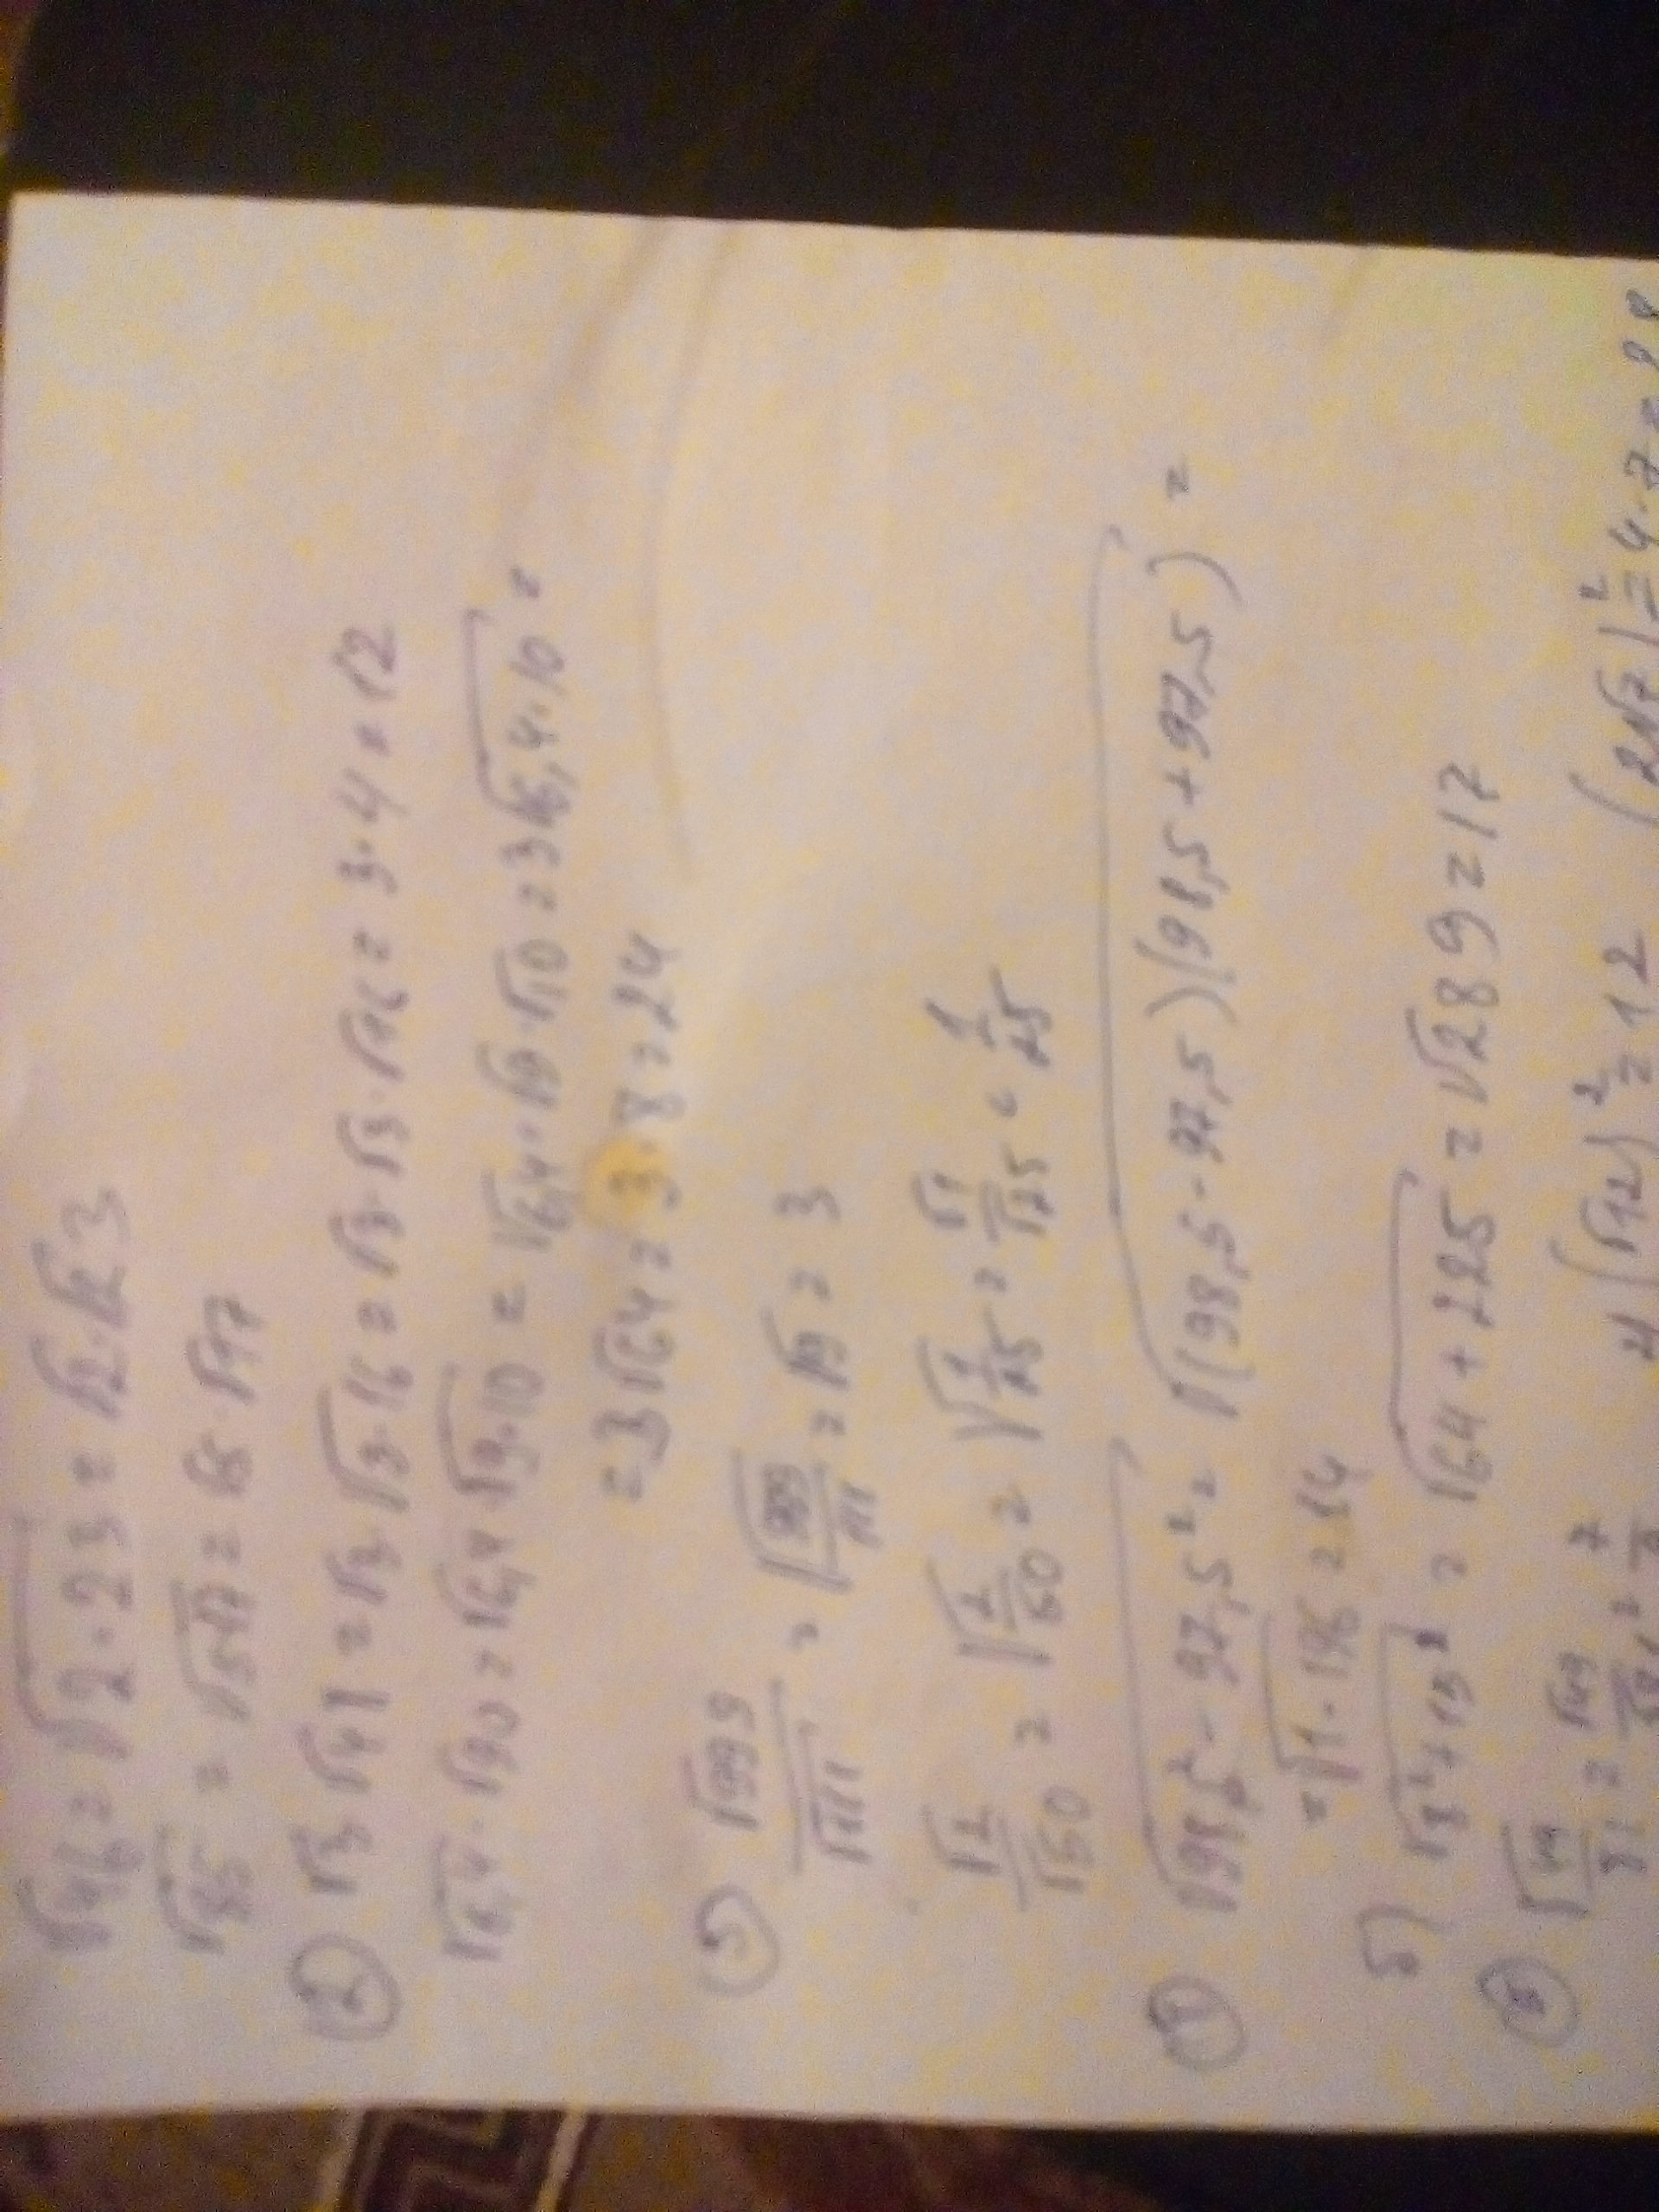 √46 = √2·23 = √2·√23
√85 = √5·17 = √5·√17
② √3 √48 = √3·√3·16 = √3·√3·√16 = 3·4 = 12
√6,4·√90 = √6,4 √9·10 = √6,4·√9·√10 = 3√6,4·10 =
= 3√64 = 3·8 = 24
③ √999/√111 = √999/111 = √9 = 3
√2/√50 = √2/50 = √1/25 = √1/√25 = 1/25
√98,5² - 97,5² = √(98,5-97,5)(98,5+97,5) =
= √1·196 = 14
б) √8²+15² = √64+225 = √289 = 17
√49/81 = √49/√81 = 7 (√12)² = 12 (2√7)² = 4·7 = 28